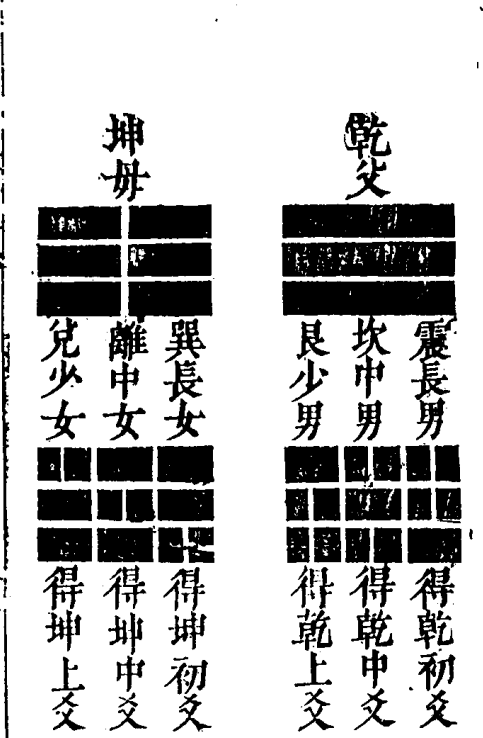 乾父
震長男
坎中男
艮少男
得乾初爻
得乾中爻
得乾上爻
坤母
巽長女
離中女
兌少女
得坤初爻
得坤中爻
得坤上爻